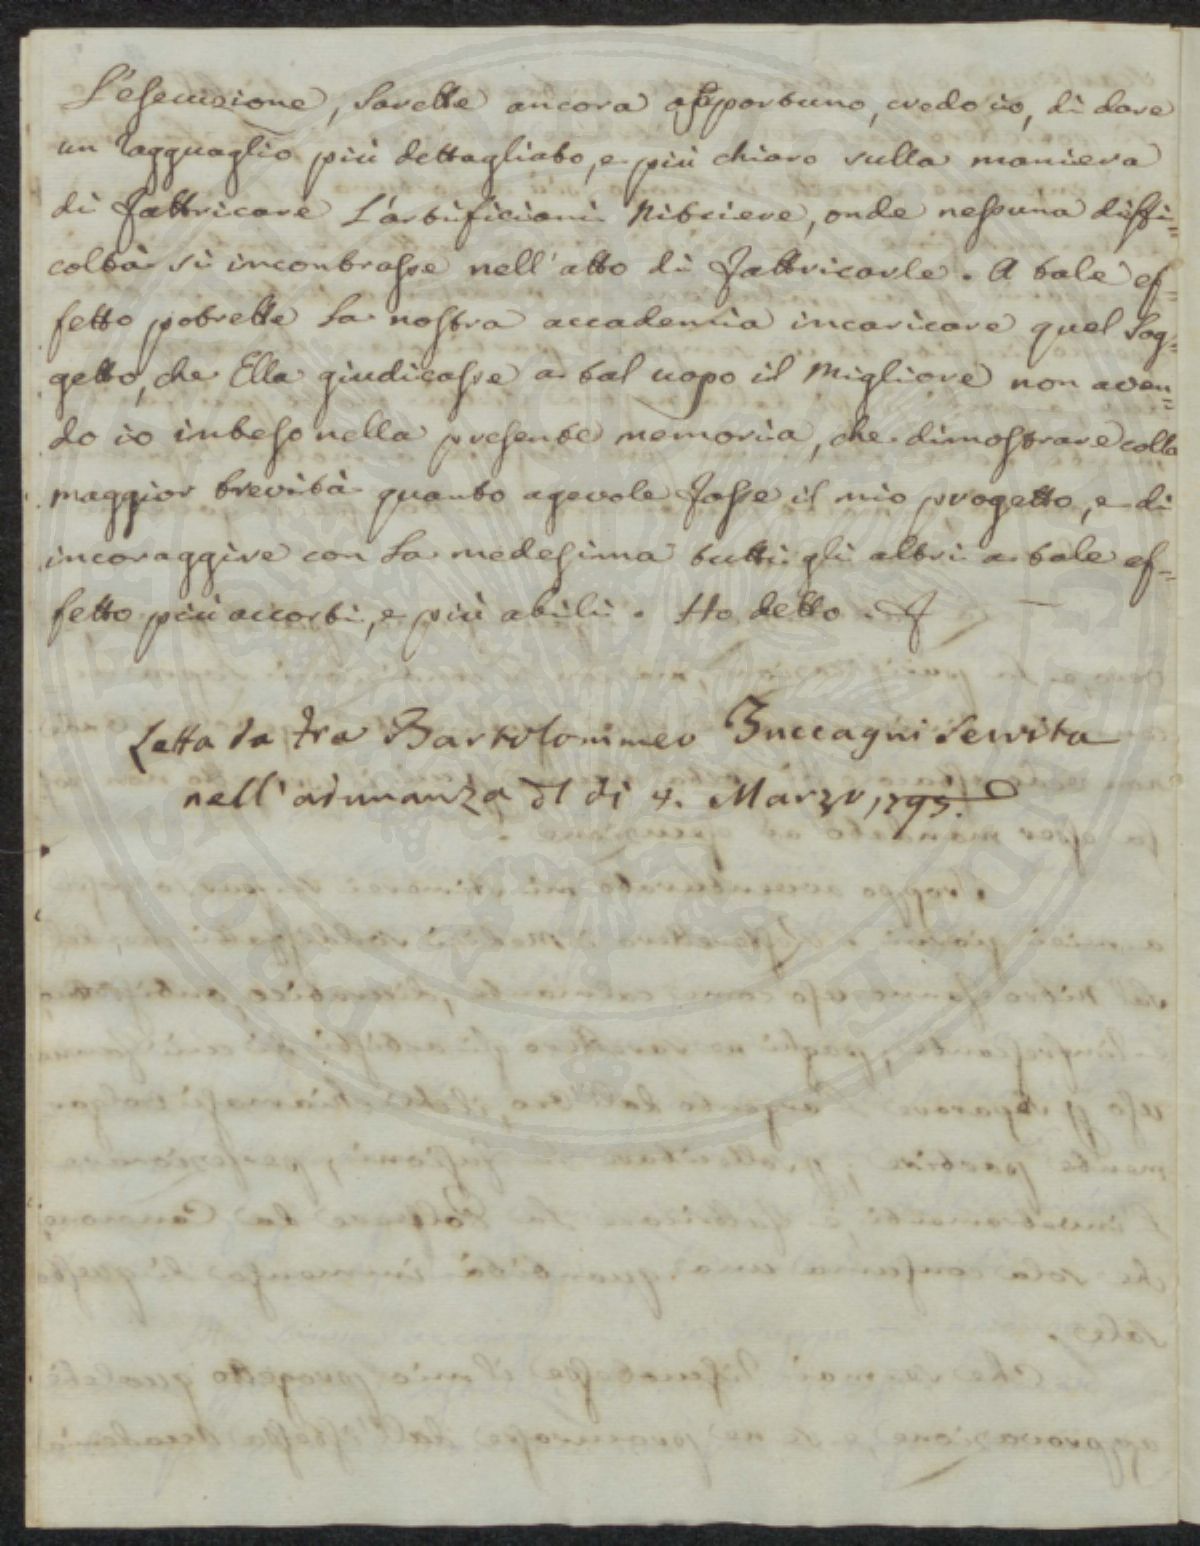 L'esecuzione, sarebbe ancora opportuno, credo io, di dare
un ragguaglio più dettagliato, e più chiaro sulla maniera
di fabbricare l'artificiani Nitriere, onde nessuna diffi=
coltà si incontrasse nell'atto di fabbricarle. A tale ef=
fetto potrebbe la nostra accademia incaricare quel Sog=
getto, che Ella giudicasse a tal uopo il Migliore non aven=
do io inteso nella presente memoria, che dimostrare colla
maggior brevità quanto agevole fosse il mio progetto, e di
incoraggire con la medesima tutti gli altri a tale ef=
fetto più accorti, e più abili. Ho detto.
Letta da Fra Bartolommeo Zuccagni Servita
nell'adunanza del dì 4. Marzo 1795.